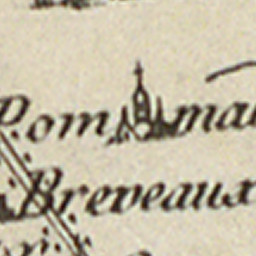 Pom mai
Breveaux